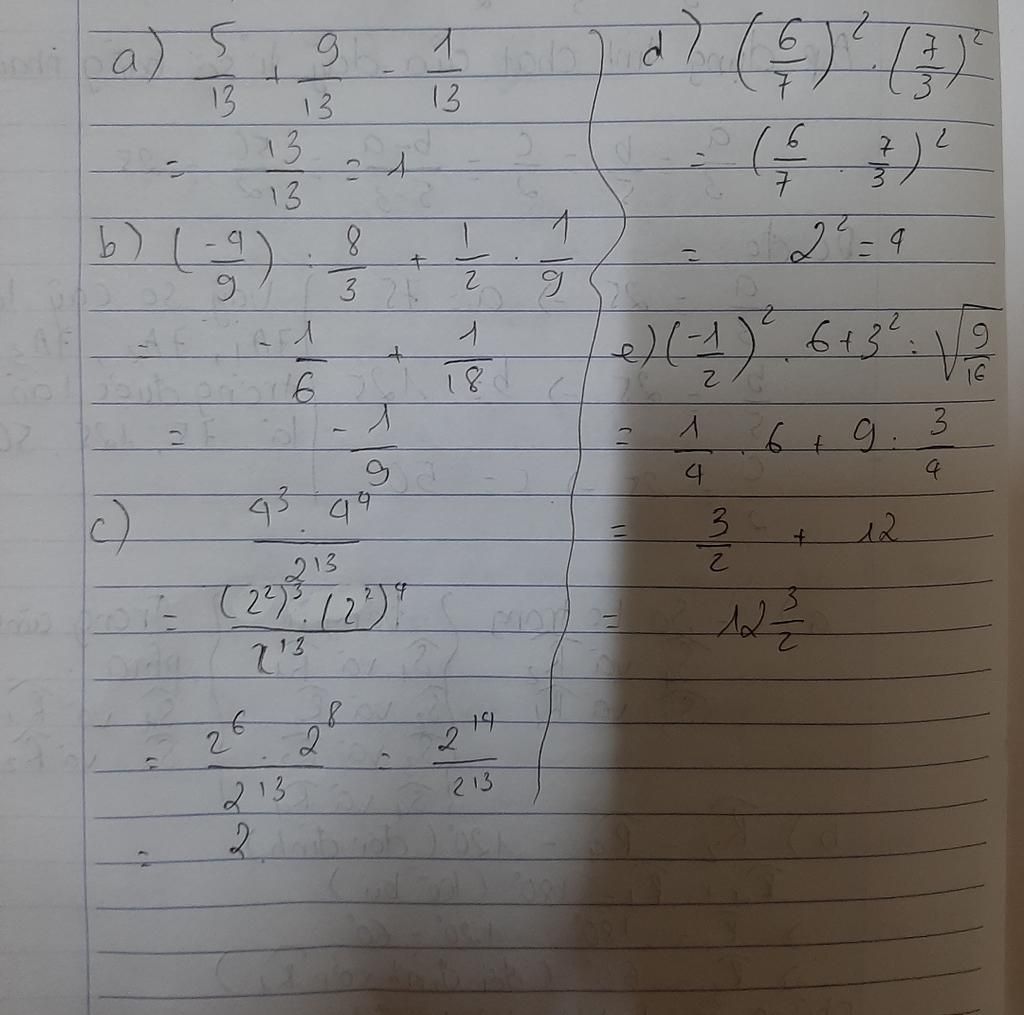 a) 5/13 + 9/13 - 1/13
= 13/13 = 1
b) (-4/9) : 8/3 + 1/2 . 1/9
= -1/6 + 1/18
= -1/9
c) 4³ . 4⁴ / 2¹³
= (2²)³ . (2²)⁴ / 2¹³
= 2⁶ . 2⁸ / 2¹³ = 2¹⁴ / 2¹³
= 2
d) (6/7)² . (7/3)²
= (6/7 . 7/3)²
= 2² = 4
e) (-1/2)² . 6 + 3² : √(9/16)
= 1/4 . 6 + 9 : 3/4
= 3/2 + 12
= 12 3/2